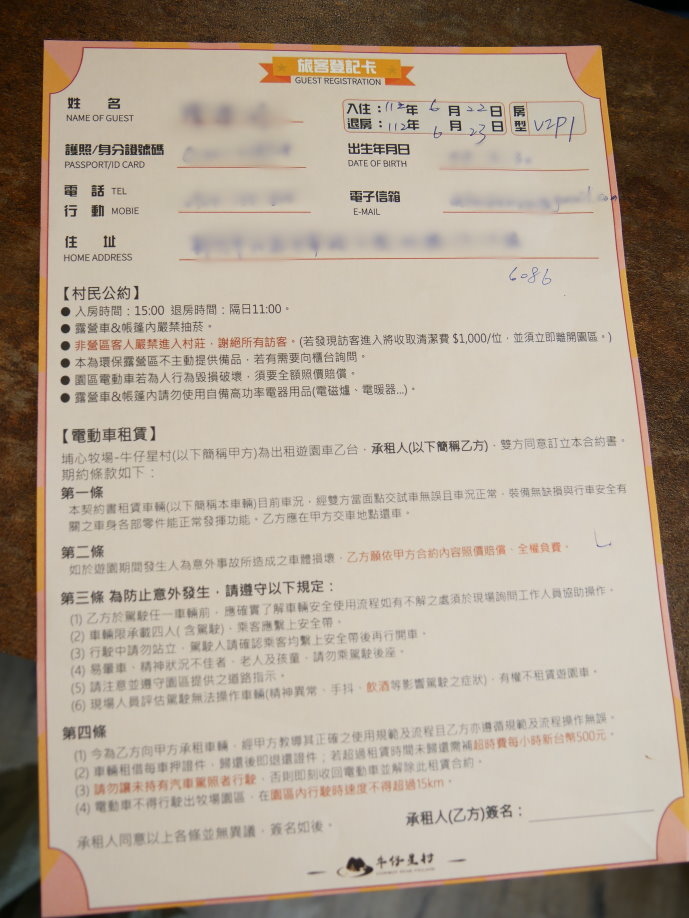 旅客登記卡
GUEST REGISTRATION
姓 名
NAME OF GUEST
入住：112年 6 月 22 日
退房：112年 6 月 23 日
房型 V2P1
護照/身分證號碼
PASSPORT/ID CARD
出生年月日
DATE OF BIRTH
電 話 TEL
行 動 MOBIE
電子信箱
E-MAIL
住 址
HOME ADDRESS
6086
【村民公約】
● 入房時間：15:00 退房時間：隔日11:00。
● 露營車&帳篷內嚴禁抽菸。
● 非營區客人嚴禁進入村莊，謝絕所有訪客。(若發現訪客進入將收取清潔費 $1,000/位，並須立即離開園區。)
● 本為環保露營區不主動提供備品，若有需要向櫃台詢問。
● 園區電動車若為人行為毀損破壞，須要全額照價賠償。
● 露營車&帳篷內請勿使用自備高功率電器用品(電磁爐、電暖器...)。
【電動車租賃】
埔心牧場-牛仔星村(以下簡稱甲方)為出租遊園車乙台，承租人(以下簡稱乙方)，雙方同意訂立本合約書。
期約條款如下：
第一條
本契約書租賃車輛(以下簡稱本車輛)目前車況，經雙方當面點交試車無誤且車況正常，裝備無缺損與行車安全有
關之車身各部零件能正常發揮功能。乙方應在甲方交車地點還車。
第二條
如於遊園期間發生人為意外事故所造成之車體損壞，乙方願依甲方合約內容照價賠償、全權負責。
第三條 為防止意外發生，請遵守以下規定：
(1) 乙方於駕駛任一車輛前，應確實了解車輛安全使用流程如有不解之處須於現場詢問工作人員協助操作。
(2) 車輛限承載四人(含駕駛)、乘客應繫上安全帶。
(3) 行駛中請勿站立，駕駛人請確認乘客均繫上安全帶後再行開車。
(4) 易暈車、精神狀況不佳者、老人及孩童，請勿乘駕駛後座。
(5) 請注意並遵守園區提供之道路指示。
(6) 現場人員評估駕駛無法操作車輛(精神異常、手抖、飲酒等影響駕駛之症狀)，有權不租賃遊園車。
第四條
(1) 今為乙方向甲方承租車輛，經甲方教導其正確之使用規範及流程且乙方亦遵循規範及流程操作無誤。
(2) 車輛租借每車押證件，歸還後即退還證件；若超過租賃時間未歸還需補超時費每小時新台幣500元。
(3) 請勿讓未持有汽車駕照者行駛，否則即刻收回電動車並解除此租賃合約。
(4) 電動車不得行駛出牧場園區，在園區內行駛時速度不得超過15km。
承租人同意以上各條並無異議，簽名如後。
承租人(乙方)簽名：
牛仔星村